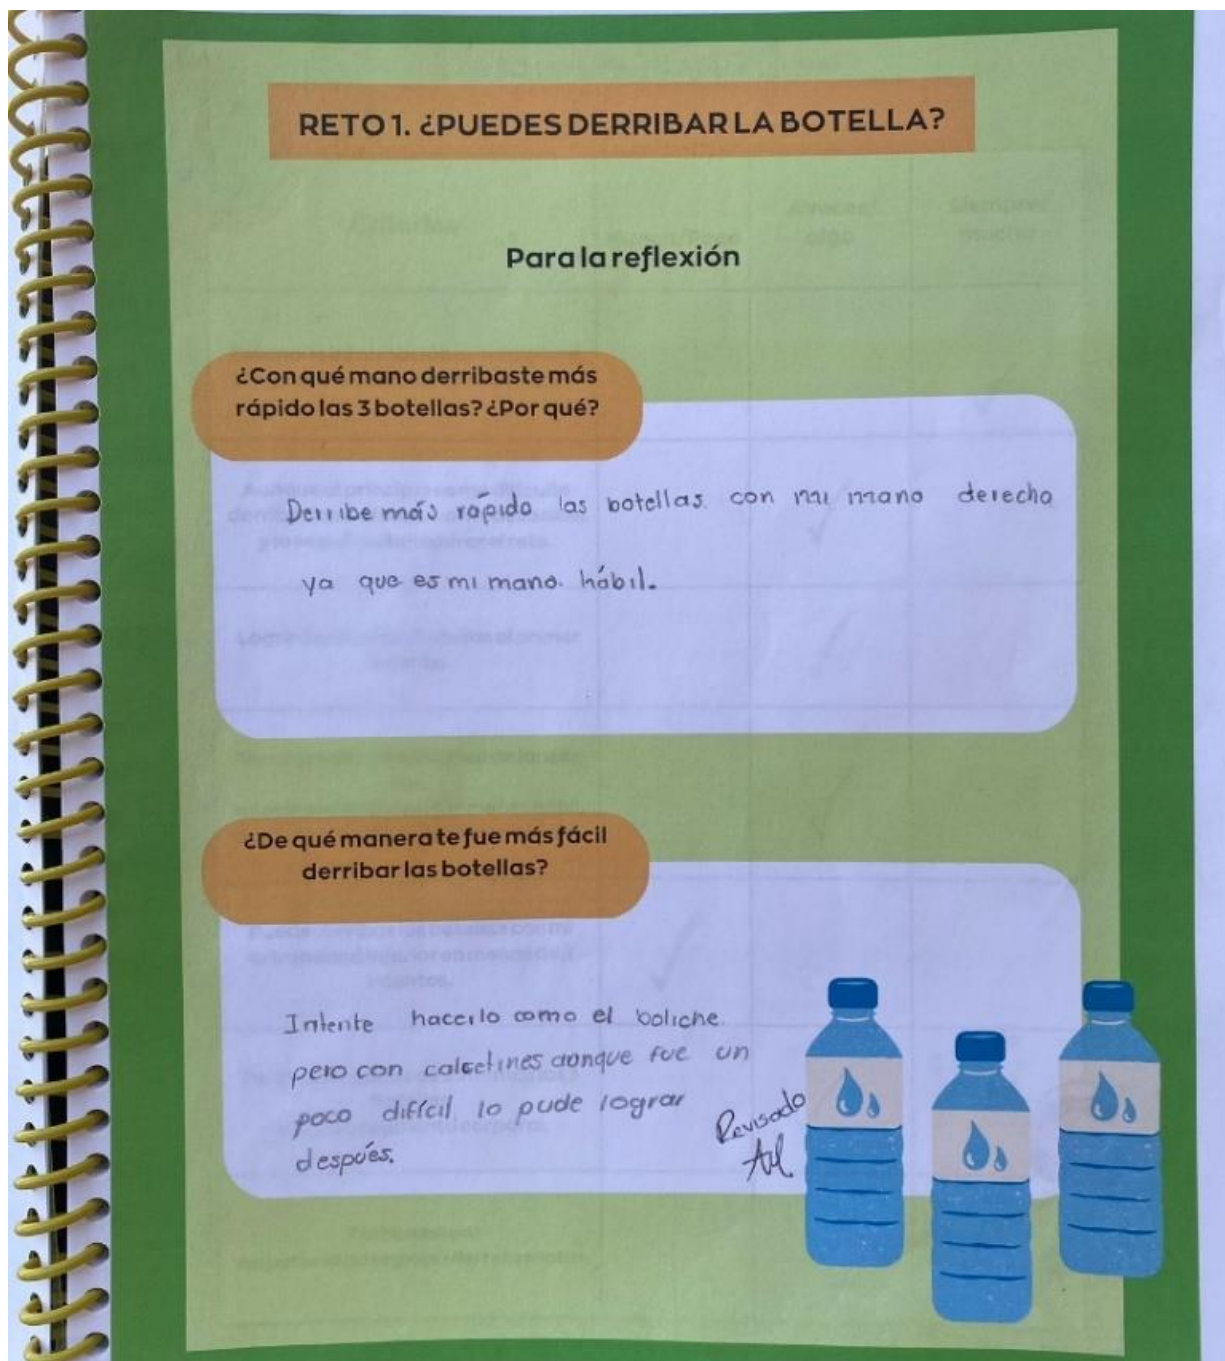 RETO 1. ¿PUEDES DERRIBAR LA BOTELLA?
Para la reflexión
¿Con qué mano derribaste más
rápido las 3 botellas? ¿Por qué?
Derribe más rápido las botellas con mi mano derecha
ya que es mi mano hábil.
¿De qué manera te fue más fácil
derribar las botellas?
Intente hacerlo como el boliche
pero con calcetines aunque fue un
poco difícil lo pude lograr
despúes.
Revisado